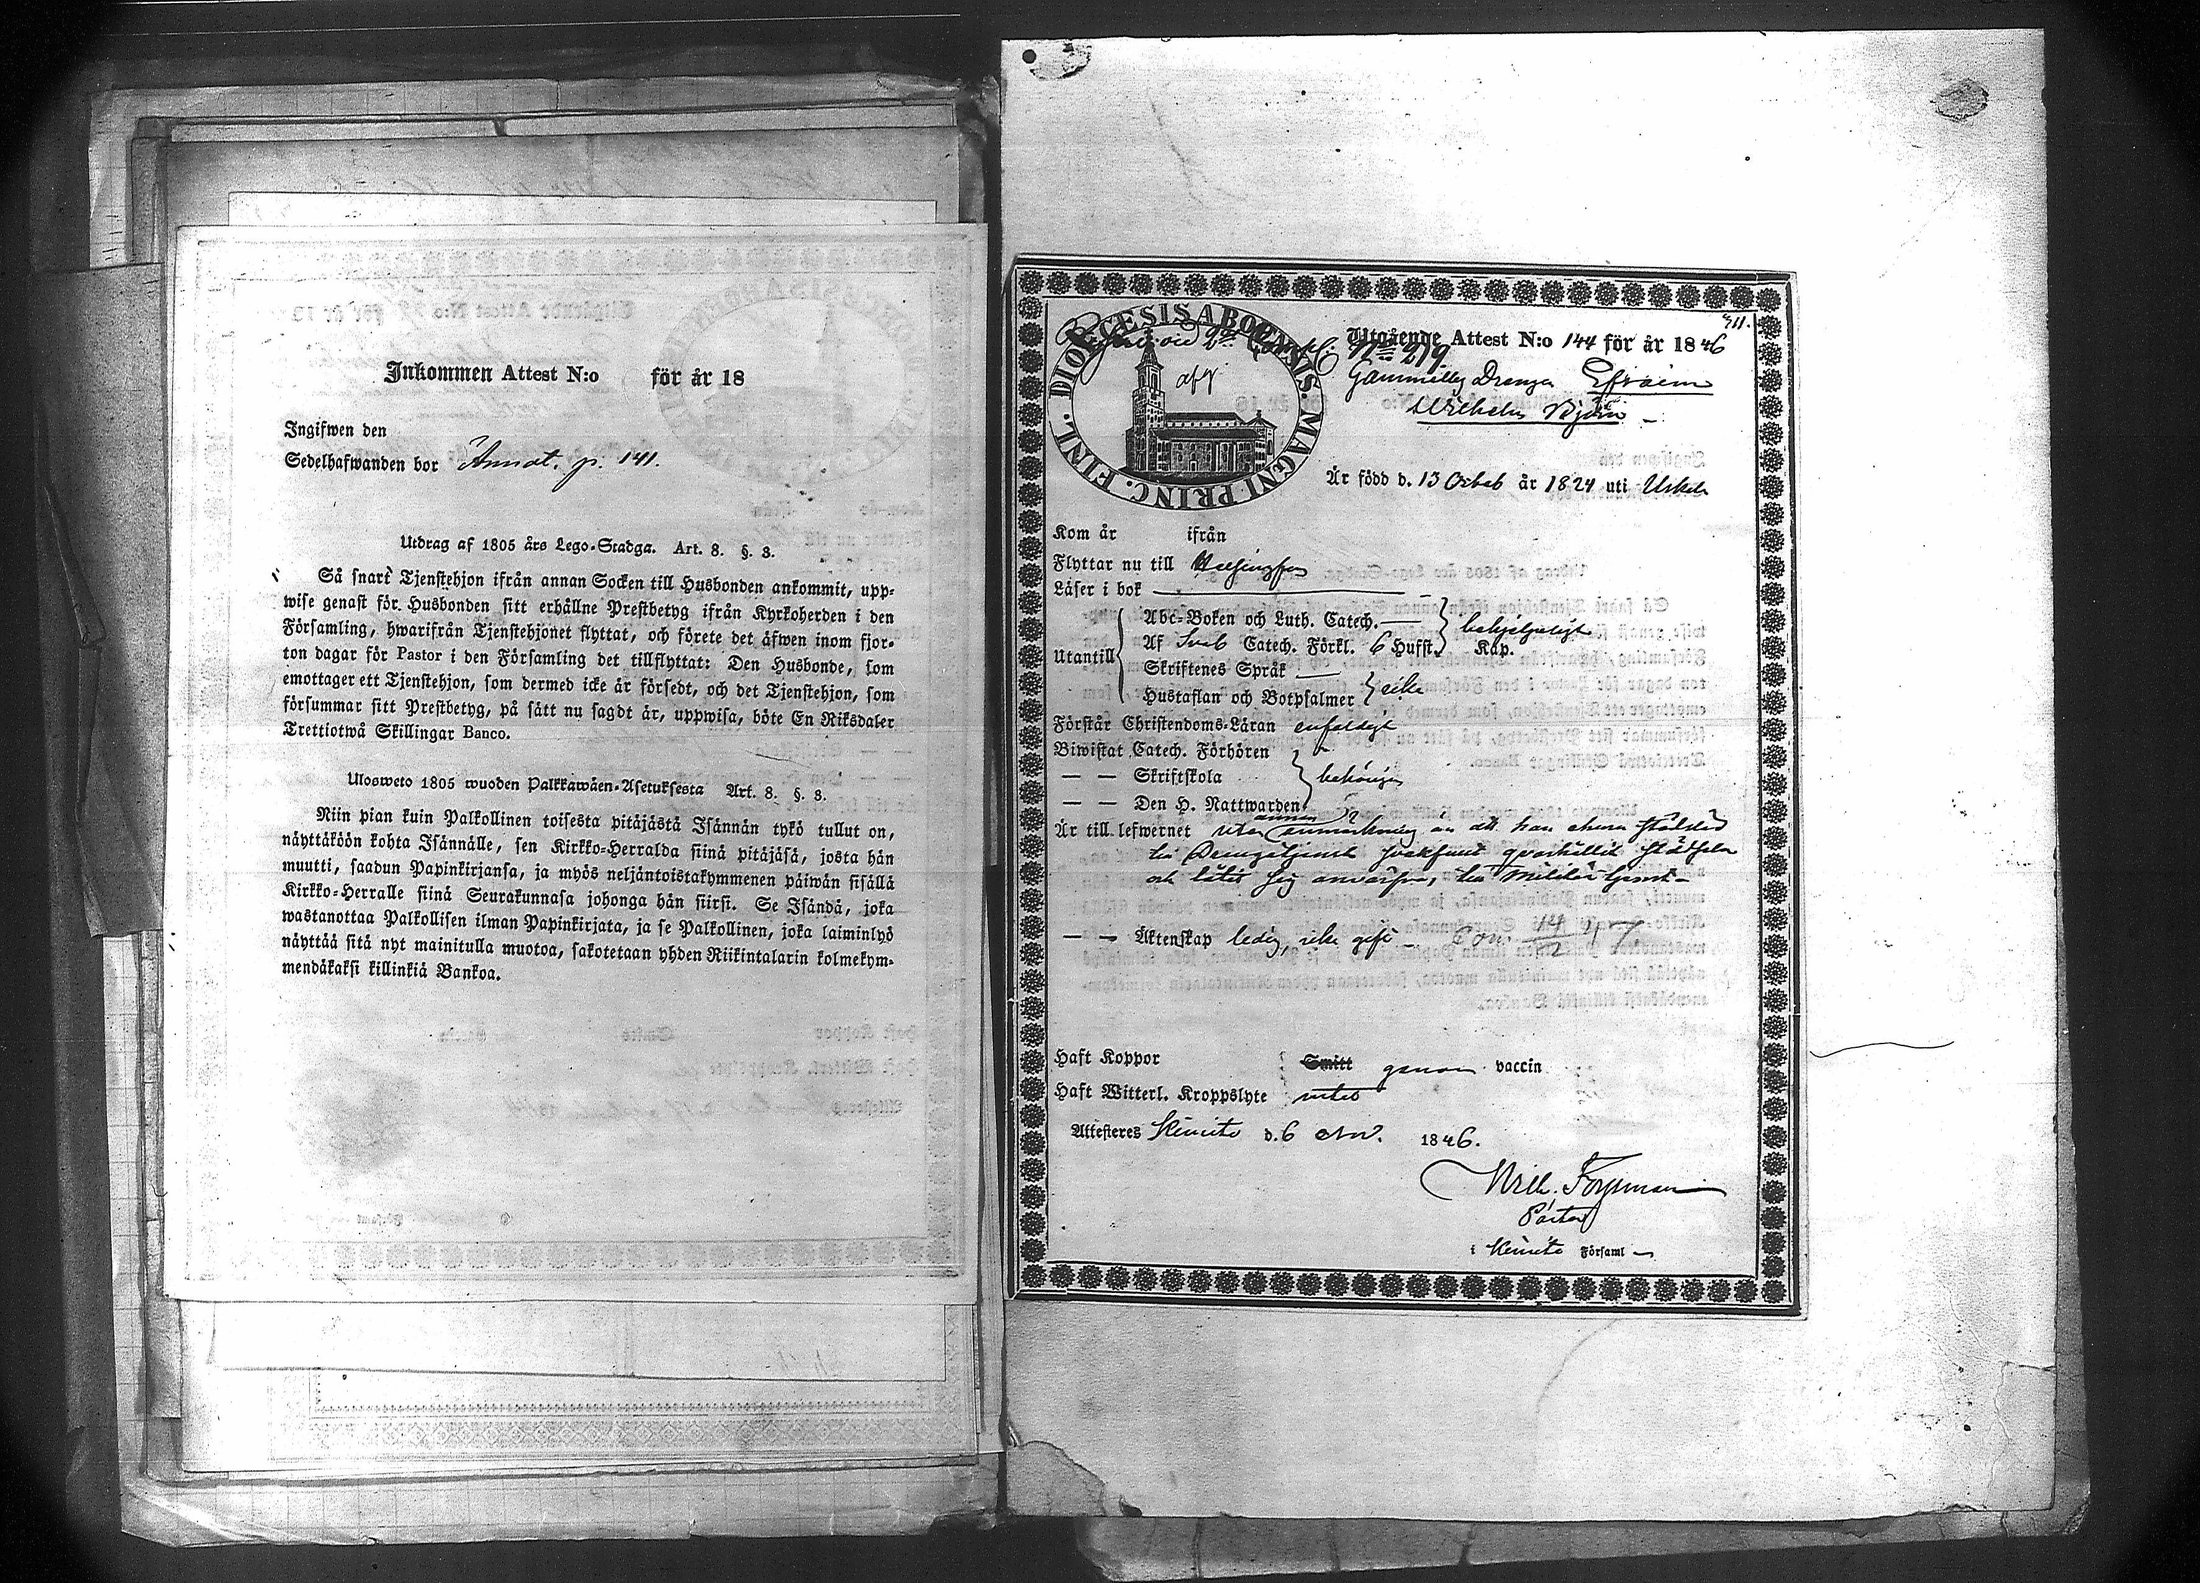 Inkommen Attest N:o för år 18
Ingifwen den
Sedelhafwanden bor Annot. p. 141.
Utdrag af 1805 års Lego-Stadga. Art. 8. §. 3.
Så snart Tjenstehjon ifrån annan Socken till Husbonden ankommit, upp-
wise genast för Husbonden sitt erhållne Prestbetyg ifrån Kyrkoherden i den
Församling, hwarifrån Tjenstehjonet flyttat, och förete det äfwen inom fjor-
ton dagar för Pastor i den Församling det tillflyttat: Den Husbonde, som
emottager ett Tjenstehjon, som dermed icke är försedt, och det Tjenstehjon, som
försummar sitt Prestbetyg, på sätt nu sagdt är, uppwisa, böte En Riksdaler
Trettiotwå Skillingar Banco.
Ulosweto 1805 wuoden Palkkawäen-Asetuksesta Art. 8. §. 3.
Niin pian kuin Palkollinen toisesta pitäjästä Isännän tykö tullut on,
näyttäköön kohta Isännälle, sen Kirkko-Herralda siinä pitäjäsä, josta hän
muutti, saadun Papinkirjansa, ja myös neljäntoistakymmenen päiwän sisällä
Kirkko-Herralle siinä Seurakunnasa johonga hän siirsi. Se Isändä, joka
wastanottaa Palkollisen ilman Papinkirjata, ja se Palkollinen, joka laiminlyö
näyttää sitä nyt mainitulla muotoa, sakotetaan yhden Riikintalarin kolmekym-
mendäkaksi killinkiä Bankoa.
DIOECESIS ABOENSIS. MAGNI PRINC. FINL.
Utgående Attest N:o 144 för år 1846
N:o 219
afg.
Gammelby Drengen Efraim
Wilhelm Björn
Är född d. 13 Octob år 1824 uti Uskela
Kom år ifrån
Flyttar nu till Helsingfors
Läser i bok
Utantill
Abc-Boken och Luth. Catech.
Af Sveb Catech. Förkl. 6 Hufst. Kap.
Skriftenes Språk
Hustaflan och Botpsalmer icke
Förstår Christendoms-Läran enfaldigt
Biwistat Catech. Förhören
— — Skriftskola behörigen
— — Den H. Nattwarden
Är till lefwernet utan annan anmärkning än att han
och låtit sig till Militär tjenst
— — Äktenskap ledig, icke gift
Haft Koppor Smitt genom vaccin
Haft Witterl. Kroppslyte intet
Attesteres Kimito d. 6 Nov. 1846.
Wilh. Forssman
Pastor
i Kimito Församl